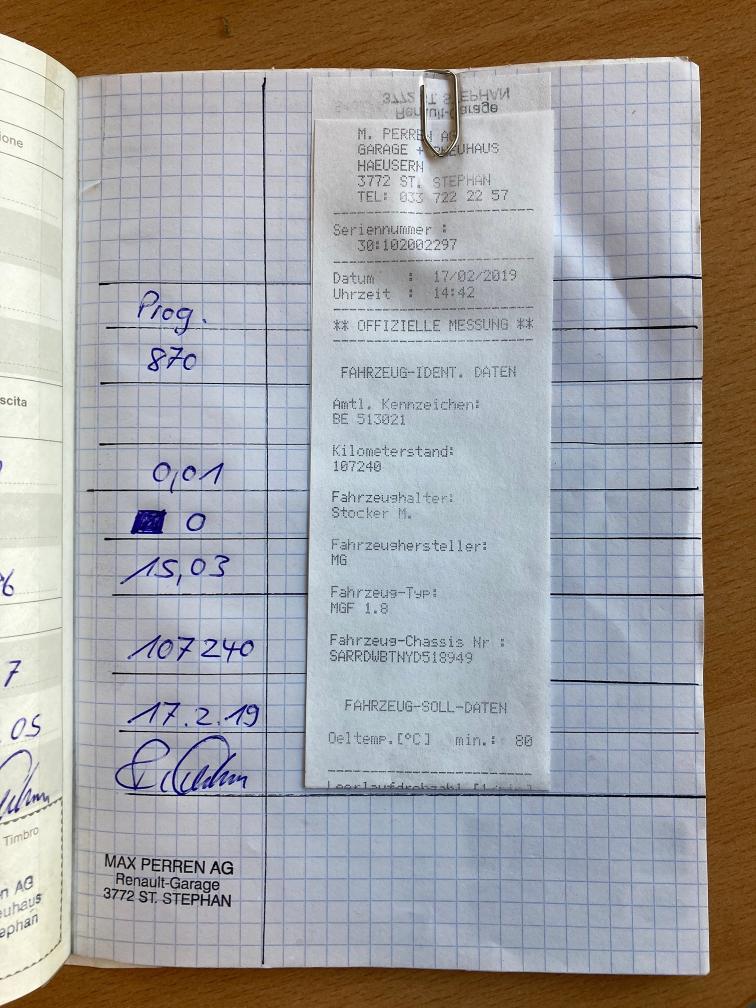 ione
scita
6
7
05
Timbro
n AG
euhaus
ephan
Prog.
870
0,01
0
15,03
107240
17.2.19
MAX PERREN AG
Renault-Garage
3772 ST. STEPHAN
3772 ST. STEPHAN
Renault-Garage
M. PERREN AG
GARAGE + NEUHAUS
HAEUSERN
3772 ST. STEPHAN
TEL: 033 722 22 57
Seriennummer :
30:102002297
Datum : 17/02/2019
Uhrzeit : 14:42
** OFFIZIELLE MESSUNG **
FAHRZEUG-IDENT. DATEN
Amtl. Kennzeichen:
BE 513021
Kilometerstand:
107240
Fahrzeughalter:
Stocker M.
Fahrzeughersteller:
MG
Fahrzeug-Typ:
MGF 1.8
Fahrzeug-Chassis Nr :
SARRDWBTNYD518949
FAHRZEUG-SOLL-DATEN
Oeltemp.[°C] min.: 80